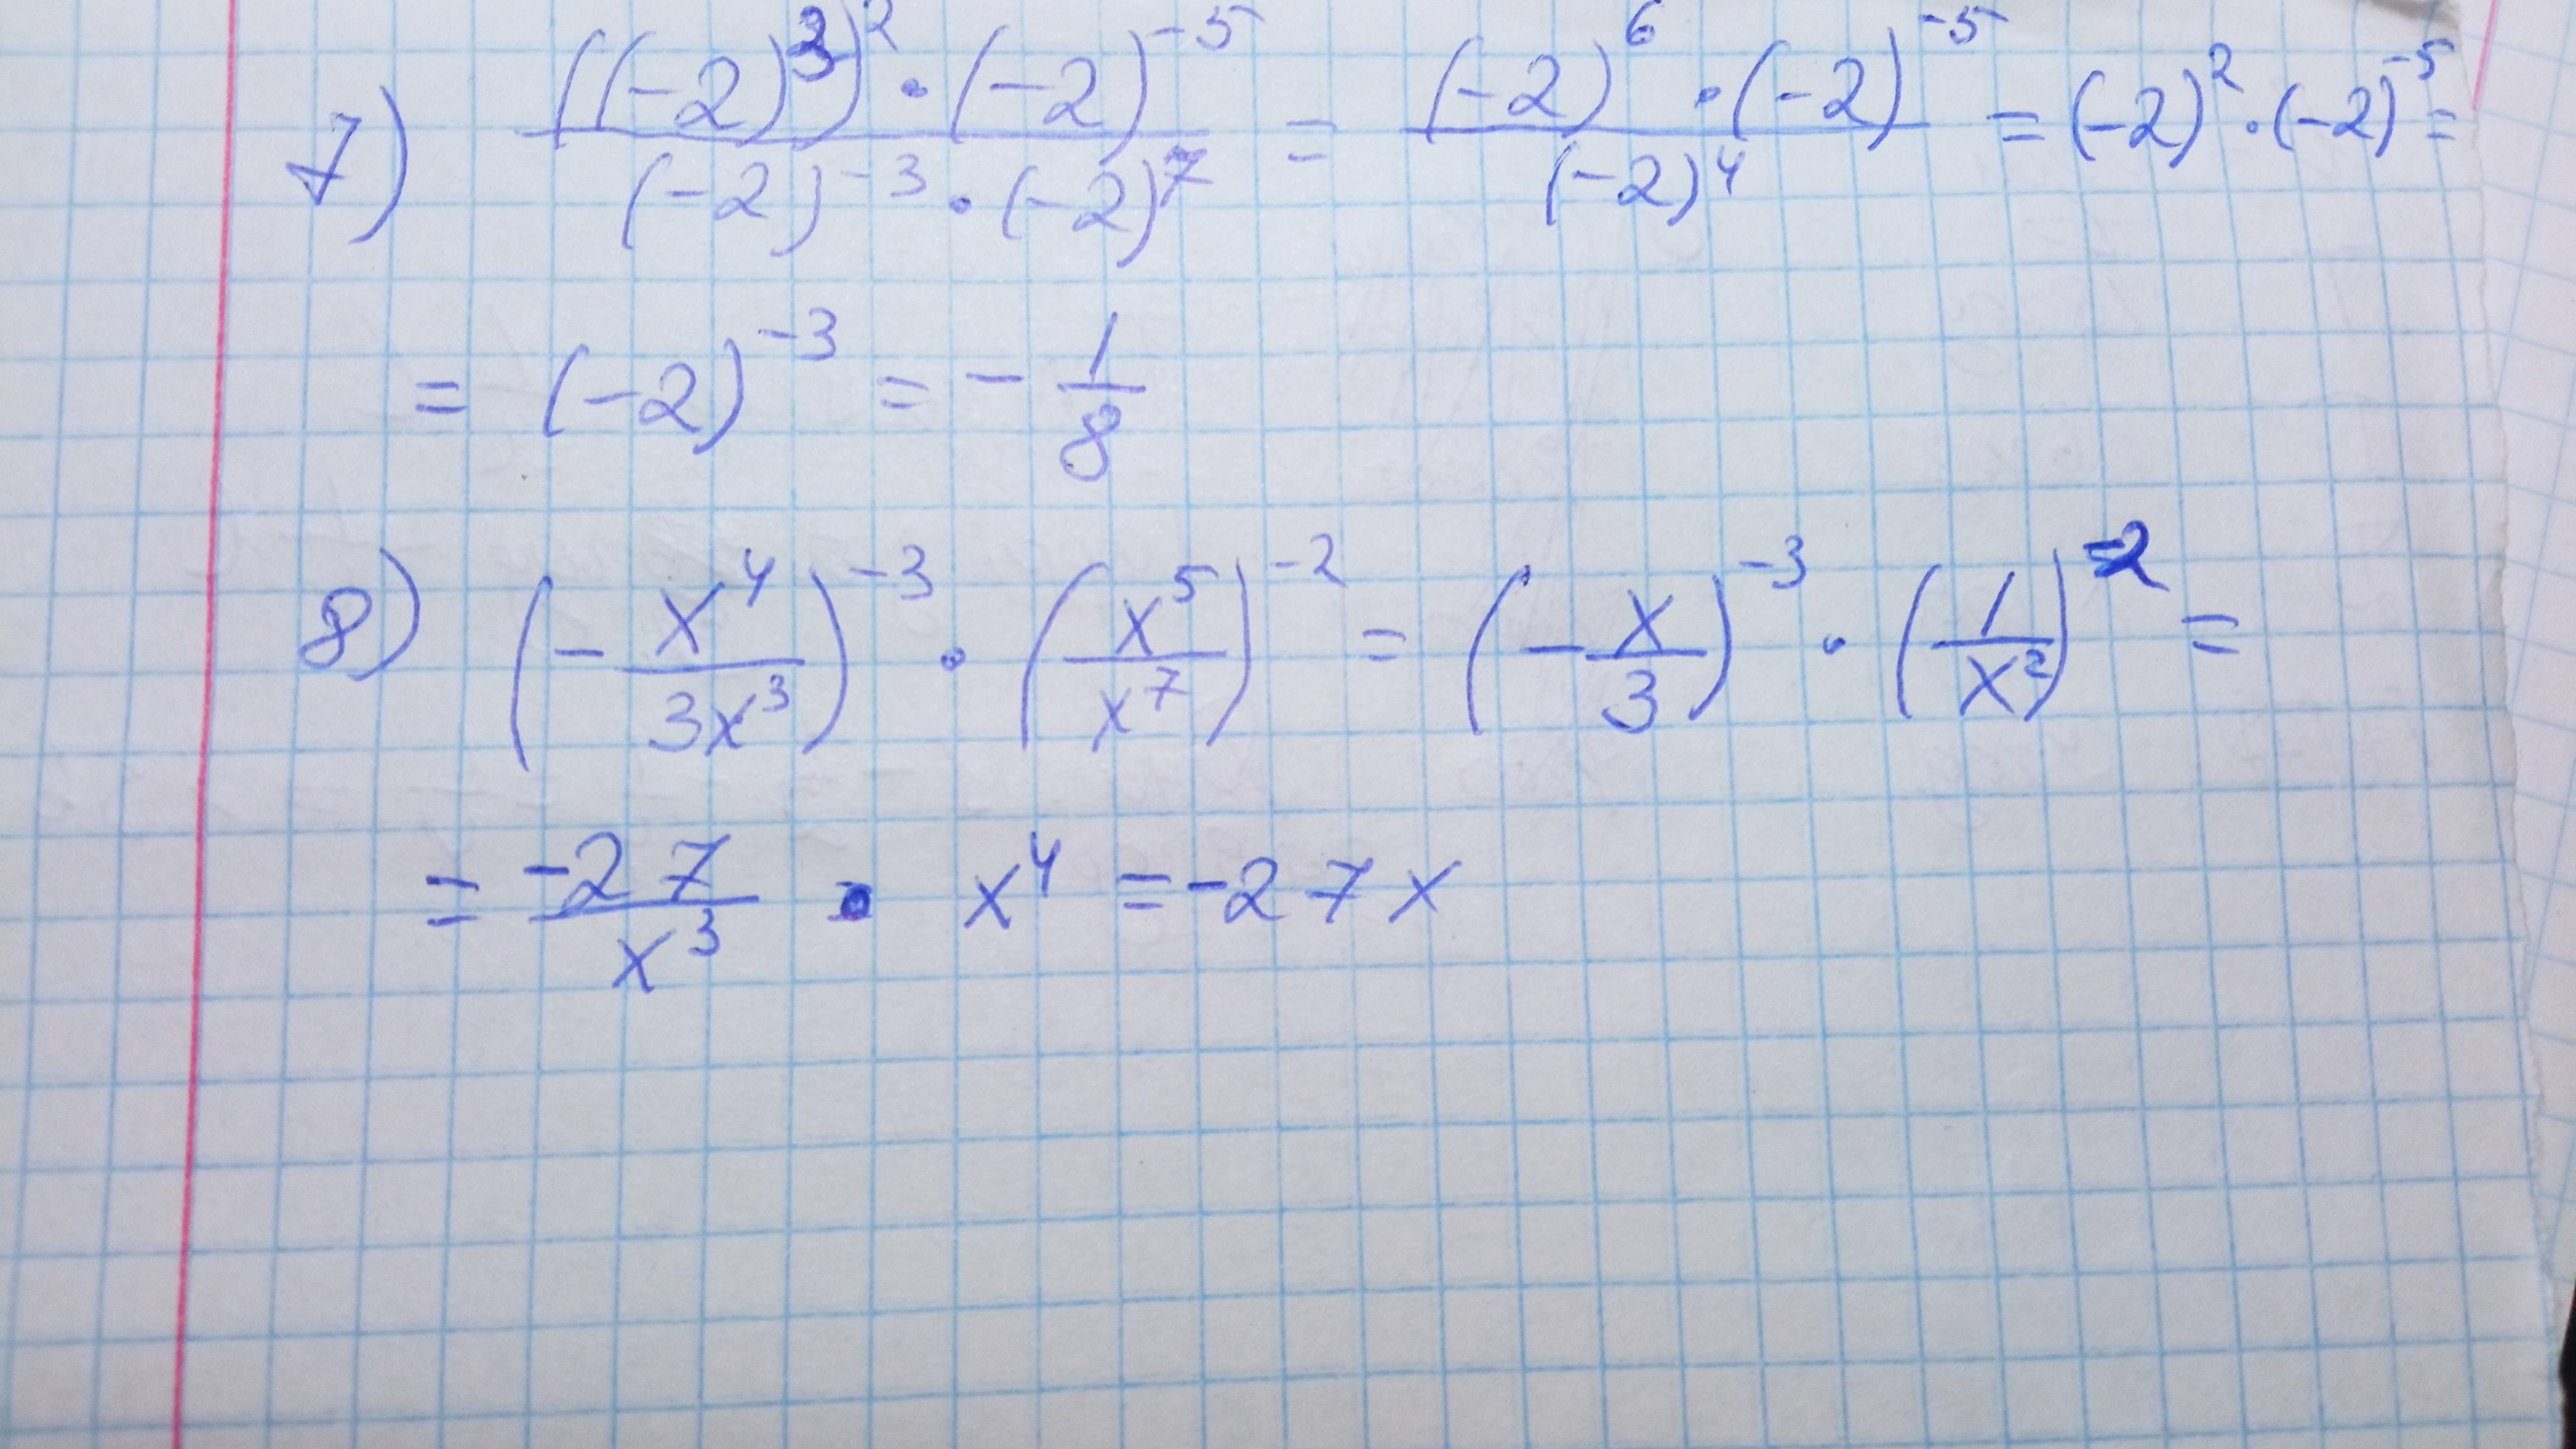 7) ((-2)³)² · (-2)⁻⁵ / (-2)⁻³ · (-2)⁷ = (-2)⁶ · (-2)⁻⁵ / (-2)⁴ = (-2)² · (-2)⁻⁵ =
= (-2)⁻³ = - 1/8
8) (- x⁴/3x³)⁻³ · (x⁵/x⁷)⁻² = (- x/3)⁻³ · (1/x²)⁻² =
= -27/x³ · x⁴ = -27x